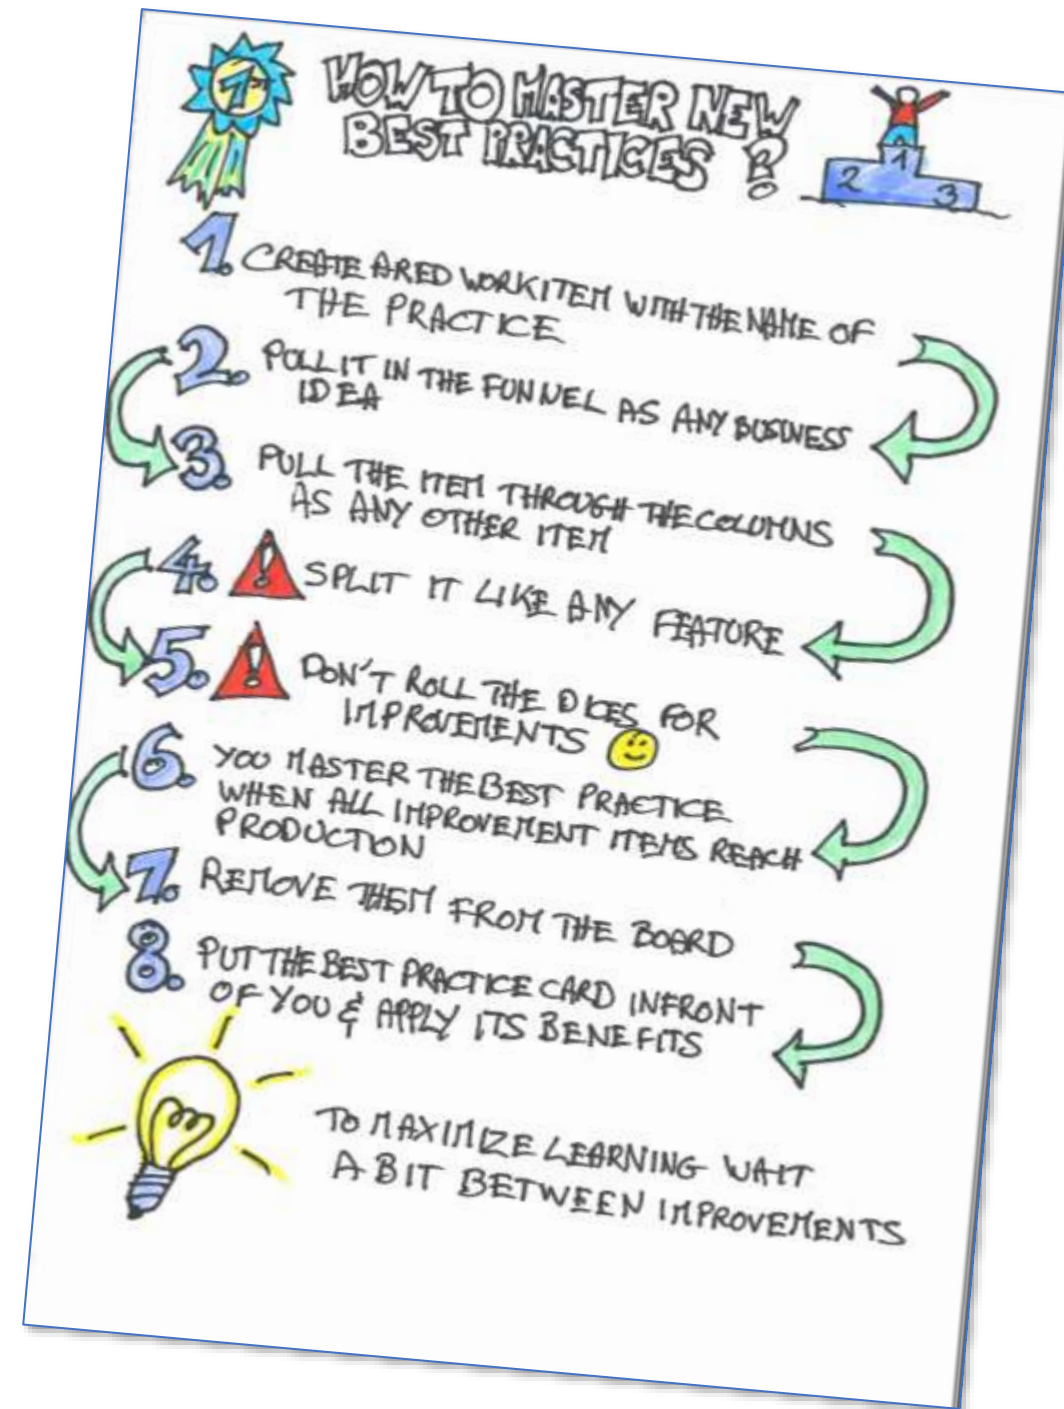 1st
HOW TO MASTER NEW
BEST PRACTICES ?
1
2
3
1. CREATE A RED WORKITEM WITH THE NAME OF
THE PRACTICE
2. PULL IT IN THE FUNNEL AS ANY BUSINESS
IDEA
3. PULL THE ITEM THROUGH THE COLUMNS
AS ANY OTHER ITEM
4. ! SPLIT IT LIKE ANY FEATURE
5. ! DON'T ROLL THE DICES FOR
IMPROVEMENTS
6. YOU MASTER THE BEST PRACTICE
WHEN ALL IMPROVEMENT ITEMS REACH
PRODUCTION
7. REMOVE THEM FROM THE BOARD
8. PUT THE BEST PRACTICE CARD INFRONT
OF YOU & APPLY ITS BENEFITS
TO MAXIMIZE LEARNING WAIT
A BIT BETWEEN IMPROVEMENTS